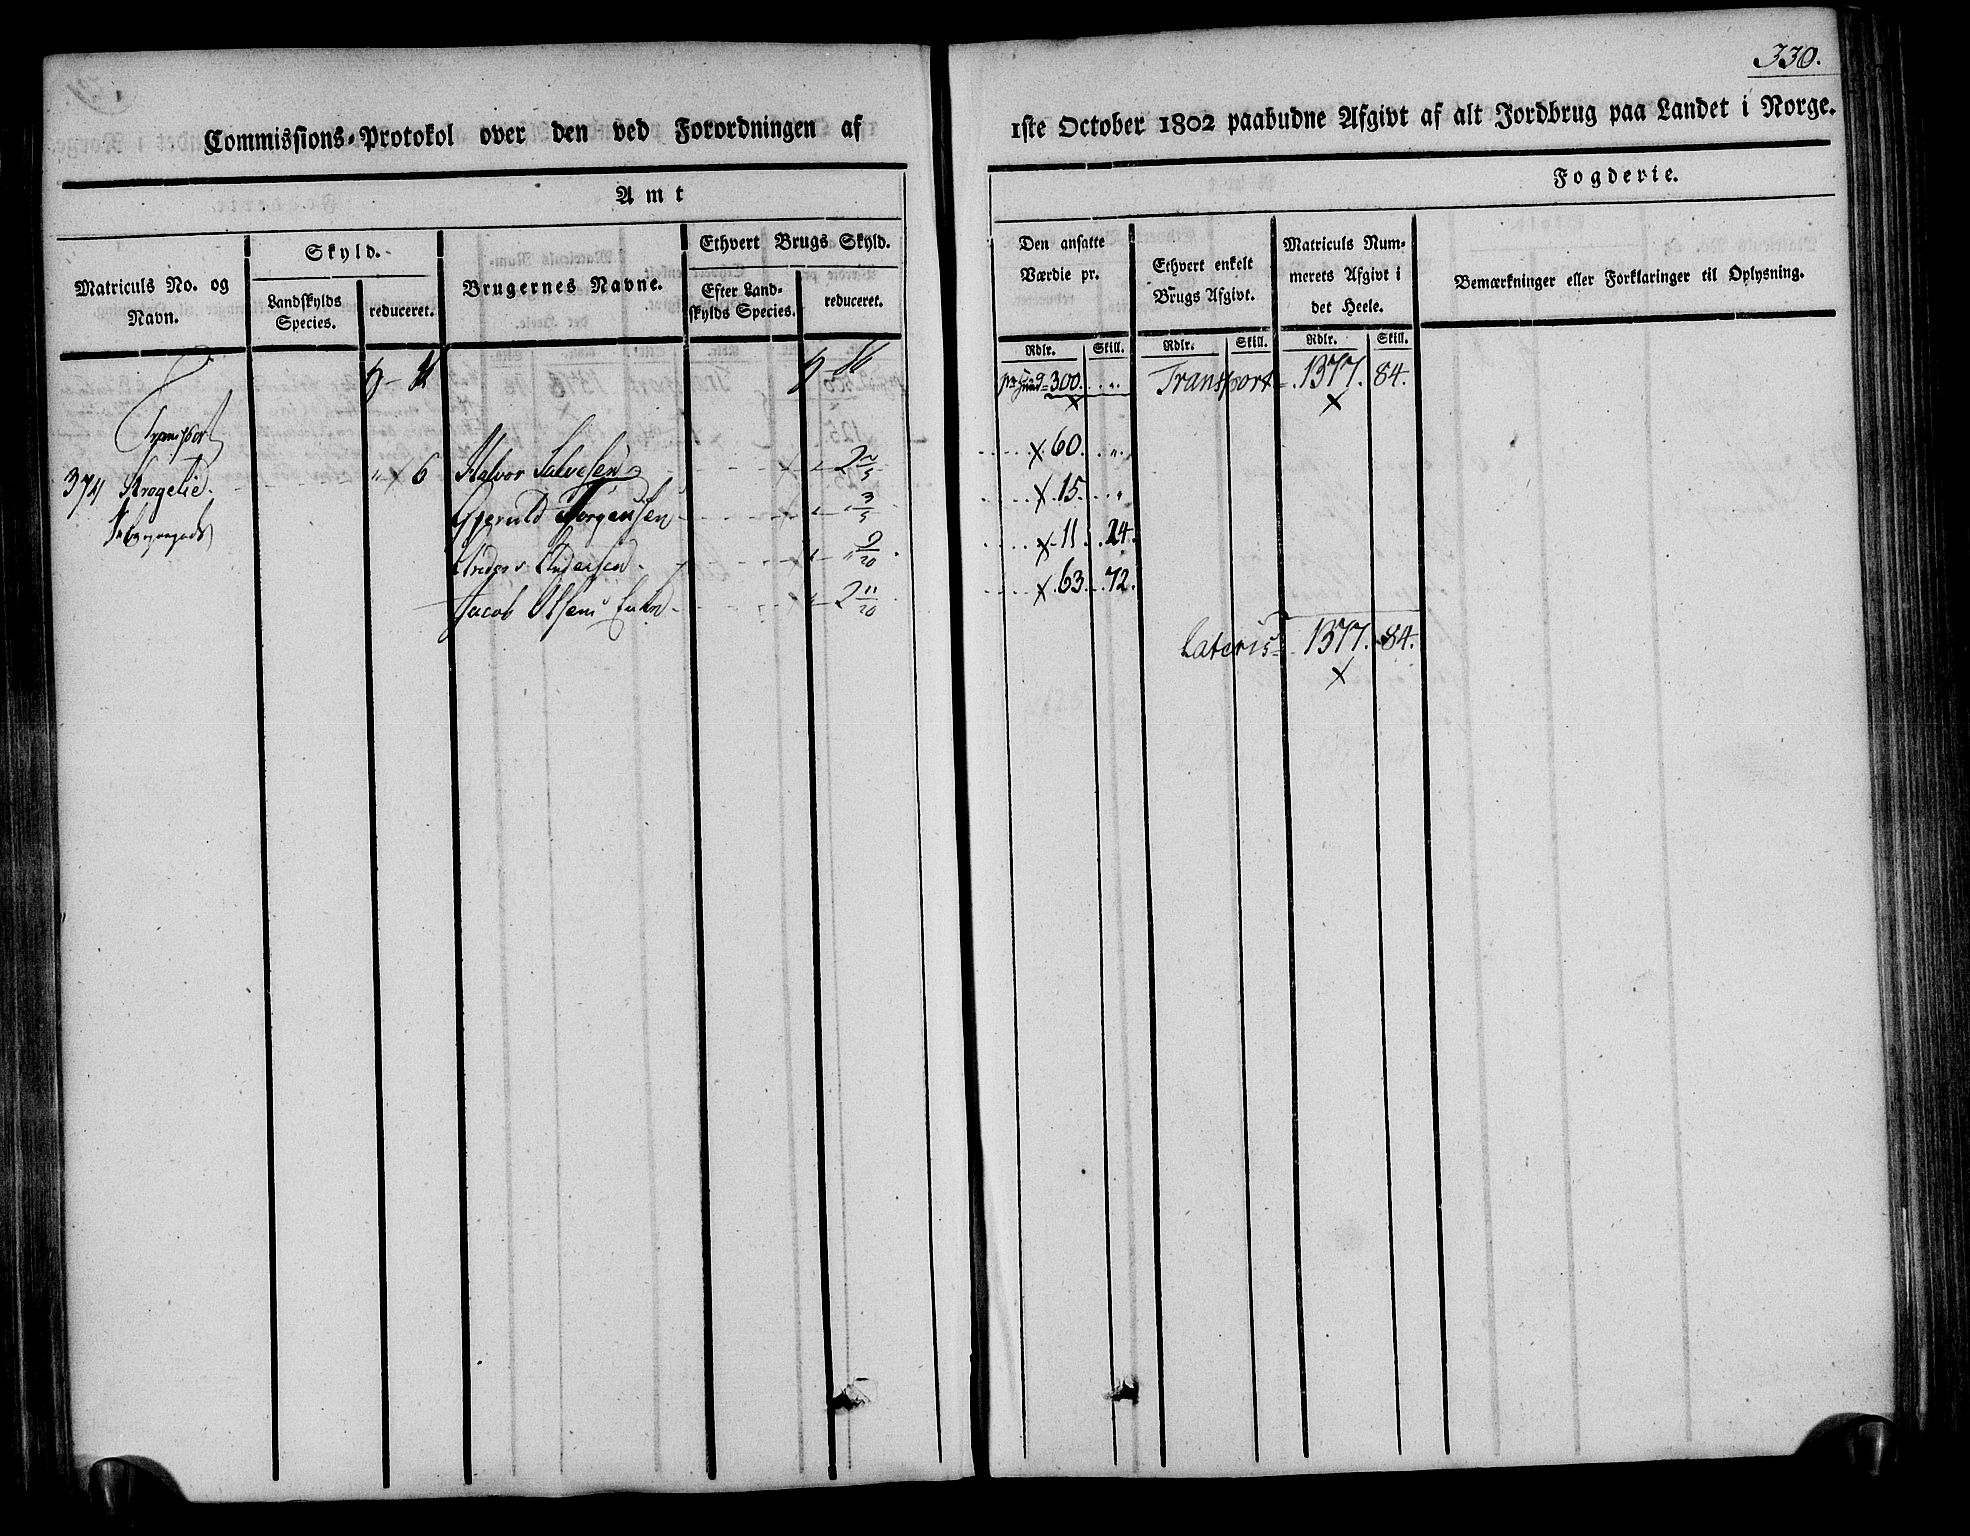 330.
Commissions-Protokol over den ved Forordningen af 1ste October 1802 paabudne Afgivt af alt Jordbrug paa Landet i Norge.
Amt
Fogderie.
Matriculs No. og Navn.
Skyld.
Landskylds Species.
reduceret.
Brugernes Navne.
Ethvert Brugs Skyld.
Efter Landskylds Species.
reduceret.
Den ansatte Værdie pr.
Rdlr. Skill.
Ethvert enkelt Brugs Afgivt.
Rdlr. Skill.
Matriculs Nummerets Afgivt i det Heele.
Rdlr. Skill.
Bemærkninger eller Forklaringer til Oplysning.
Transport
pr Hud 300. „ Transport 1377. 84.
374 „ × 6 Halvor Salvesen × „ 2 2/5 × 60. „
Gjeruld Jørgensen × „ „ 3/5 × 15. „
Anders Andersen × „ „ 9/20 × 11. 24.
Jacob Olsens Enke × „ 2 11/20 × 63. 72.
Lateris 1377. 84.